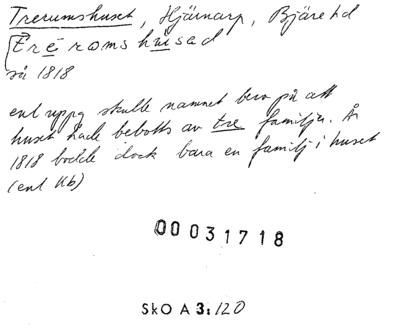 Trerumshuset, Hjärnarp, Bjäre hd
[Tré roms husad
så 1818
enl uppg skulle namnet bero på att
huset hade bebotts av tre familjer. År
1818 bodde dock bara en familj i huset
(enl Kb)
00031718
SkO A 3:120